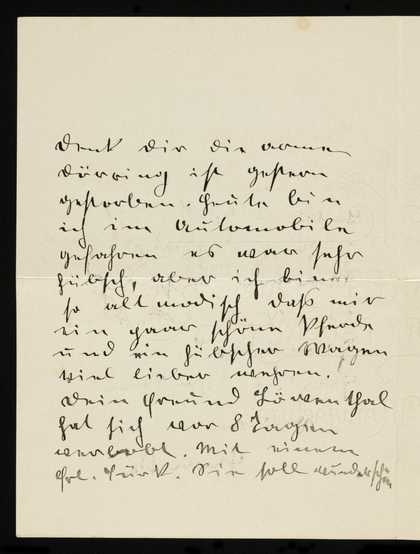 Denk dir die arme
Dürring ist gestern
gestorben. Heute bin
ich im Automobile
gefahren es war sehr
hübsch, aber ich bin
so altmodisch daß mir
ein paar schöne Pferde
und ein hübscher Wagen
viel lieber wehren.
Dein Freund Löwenthal
hat sich vor 8 Tagen
verlobt. Mit einem
Frl. Türk. Sie soll wunderschön